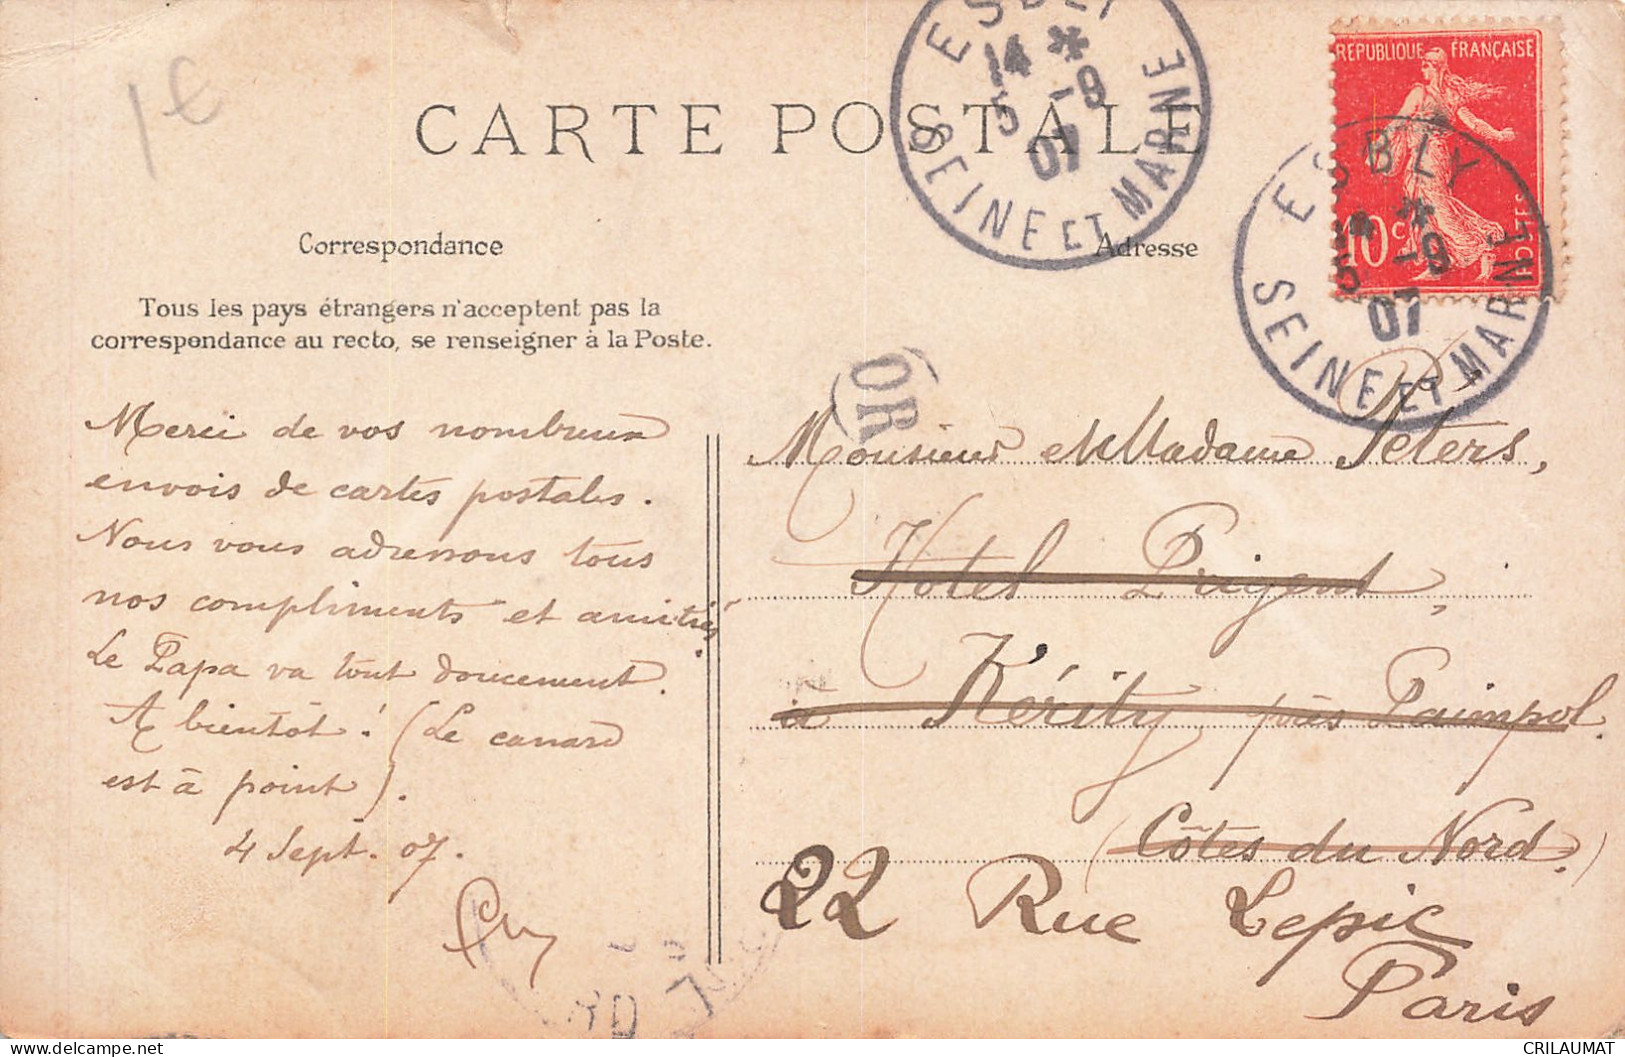 1€
CARTE POSTALE
ESBLY
14 *
5 -9
07
SEINE ET MARNE
REPUBLIQUE FRANÇAISE
10c
POSTES
ESBLY
*
5 -9
07
SEINE ET MARNE
Correspondance
Adresse
Tous les pays étrangers n'acceptent pas la
correspondance au recto, se renseigner à la Poste.
OR
Merci de vos nombreux
envois de cartes postales.
Nous vous adressons tous
nos compliments et amitiés.
Le Papa va tout doucement.
A bientôt! (Le canard
est à point).
4 Sept. 07.
Monsieur et Madame Peters,
Hotel Prigent,
à Kérity près Paimpol.
(Côtes du Nord.)
22 Rue Lepic
Paris
delcampe.net
CRILAUMAT